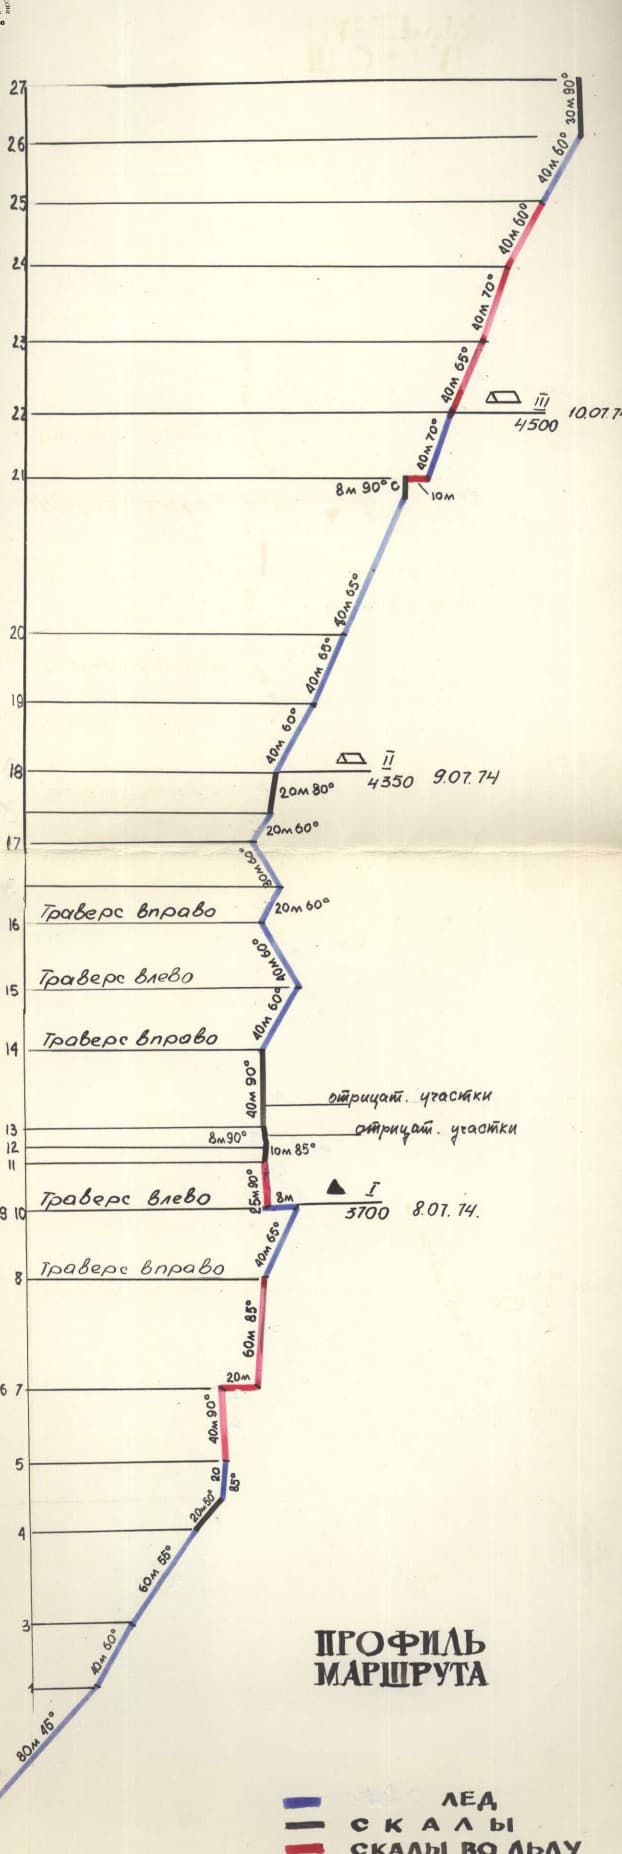 27
30м 90°
26
40м 60°
25
40м 60°
24
40м 70°
23
40м 65°
22
III
4500
10.07.7
40м 70°
21
8м 90°С
10м
40м 65°
20
40м 65°
19
40м 60°
18
II
4350 9.07.74
20м 80°
20м 60°
17
30м 60°
Траверс вправо
20м 60°
16
40м 60°
Траверс влево
15
40м 60°
Траверс вправо
14
40м 90°
отрицат. участки
13
8м 90°
отрицат. участки
12
10м 85°
11
25м 90°
Траверс влево
8м
I
9 10
3700 8.07.74.
40м 65°
Траверс вправо
8
60м 85°
20м
6 7
40м 90°
5
20
85°
20м 50°
4
60м 55°
3
40м 60°
1
80м 45°
ПРОФИЛЬ
МАРШРУТА
ЛЕД
СКАЛЫ
СКАЛЫ ВО ЛЬДУ